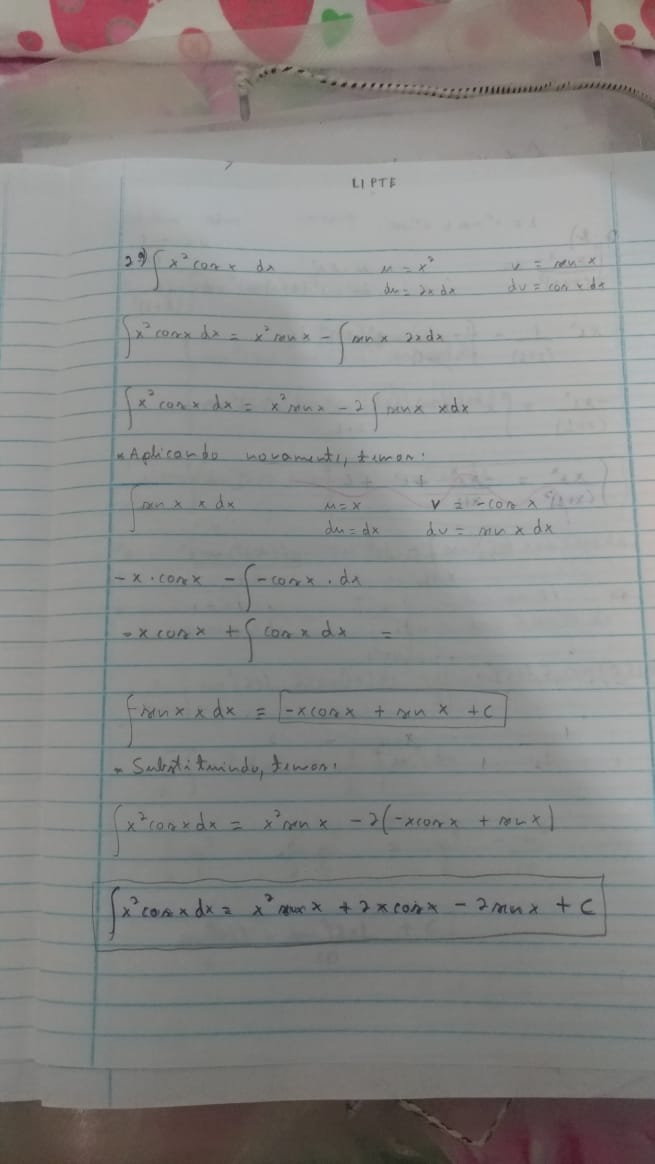 LIPTE
2º) ∫ x² cos x dx    u = x²    v = sen x
du = 2x dx    dv = cos x dx
∫ x² cos x dx = x² sen x - ∫ sen x 2x dx
∫ x² cos x dx = x² sen x - 2 ∫ sen x x dx
* Aplicando novamente, temos:
∫ sen x x dx    u = x    v = - cos x
du = dx    dv = sen x dx
- x . cos x - ∫ - cos x . dx
- x cos x + ∫ cos x dx =
∫ sen x x dx = - x cos x + sen x + C
* Substituindo, temos:
∫ x² cos x dx = x² sen x - 2(- x cos x + sen x)
∫ x² cos x dx = x² sen x + 2 x cos x - 2 sen x + C